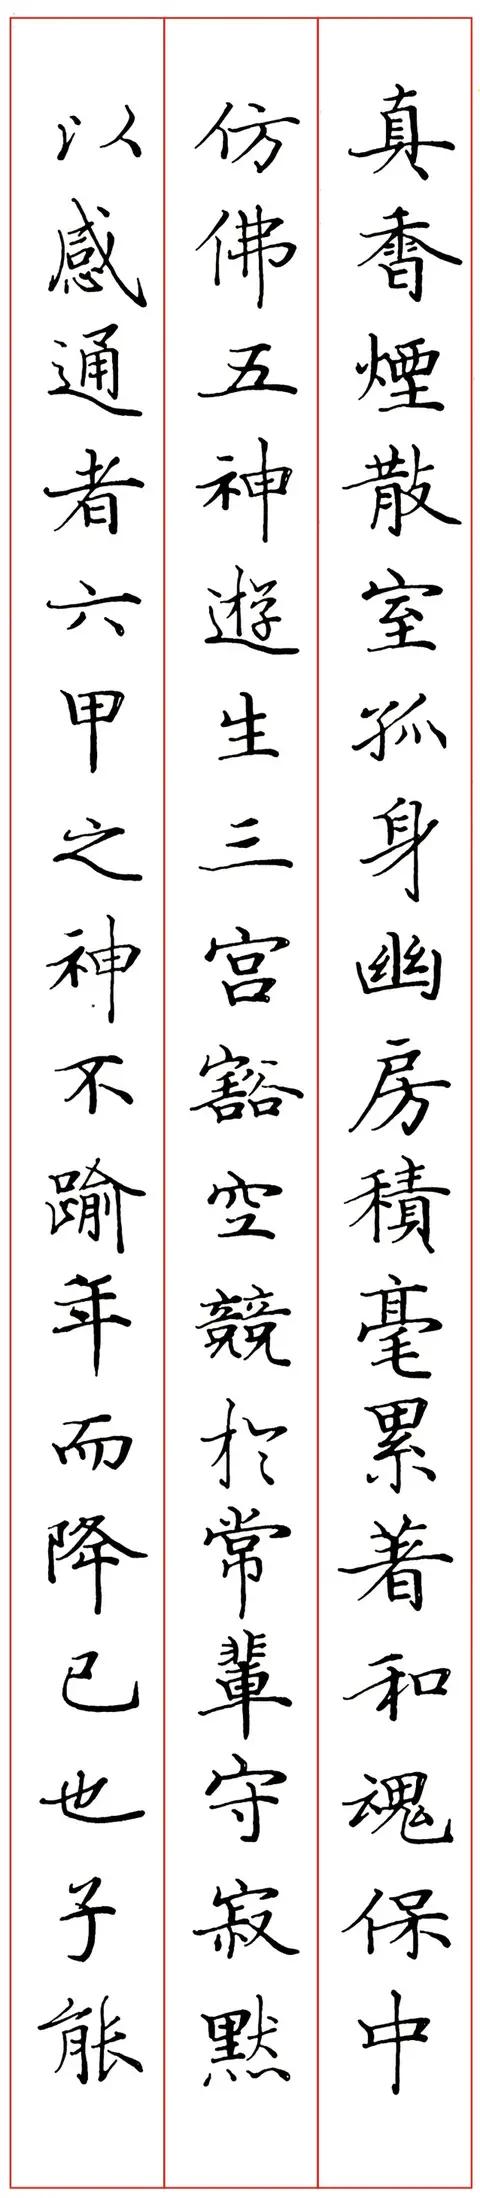 真香煙散室孤身幽房積毫累著和魂保中
仿佛五神遊生三宮豁空競於常輩守寂默
以感通者六甲之神不踰年而降已也子能